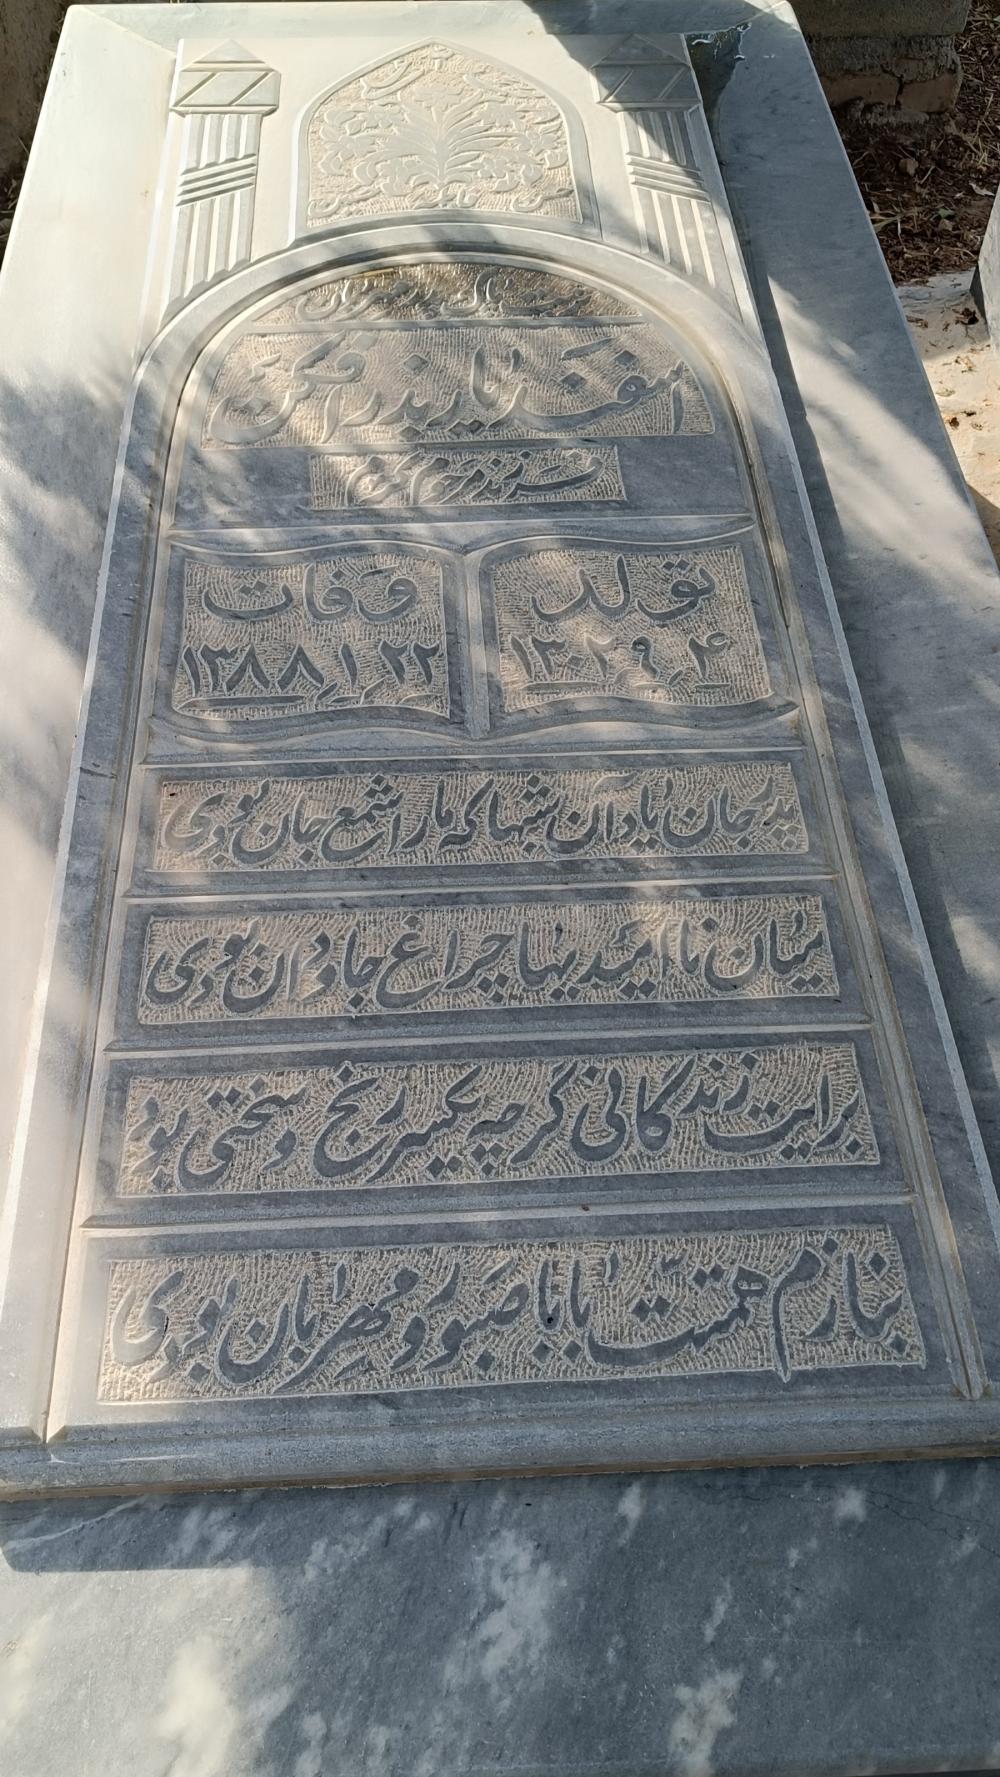 تربت پاک پدر مهربان
اسفندیار بذرافکن
فرزند مرحوم کرم
تولد
۱۳۰۲٫۹٫۴
وفات
۱۳۸۸٫۱٫۲۲
پدر جان یاد آن شبها که ما را شمع جان بودی
میان ناامیدیها چراغ جاودان بودی
برایت زندگانی گرچه یکسر رنج و سختی بود
بنازم همتت بابا صبور و مهربان بودی